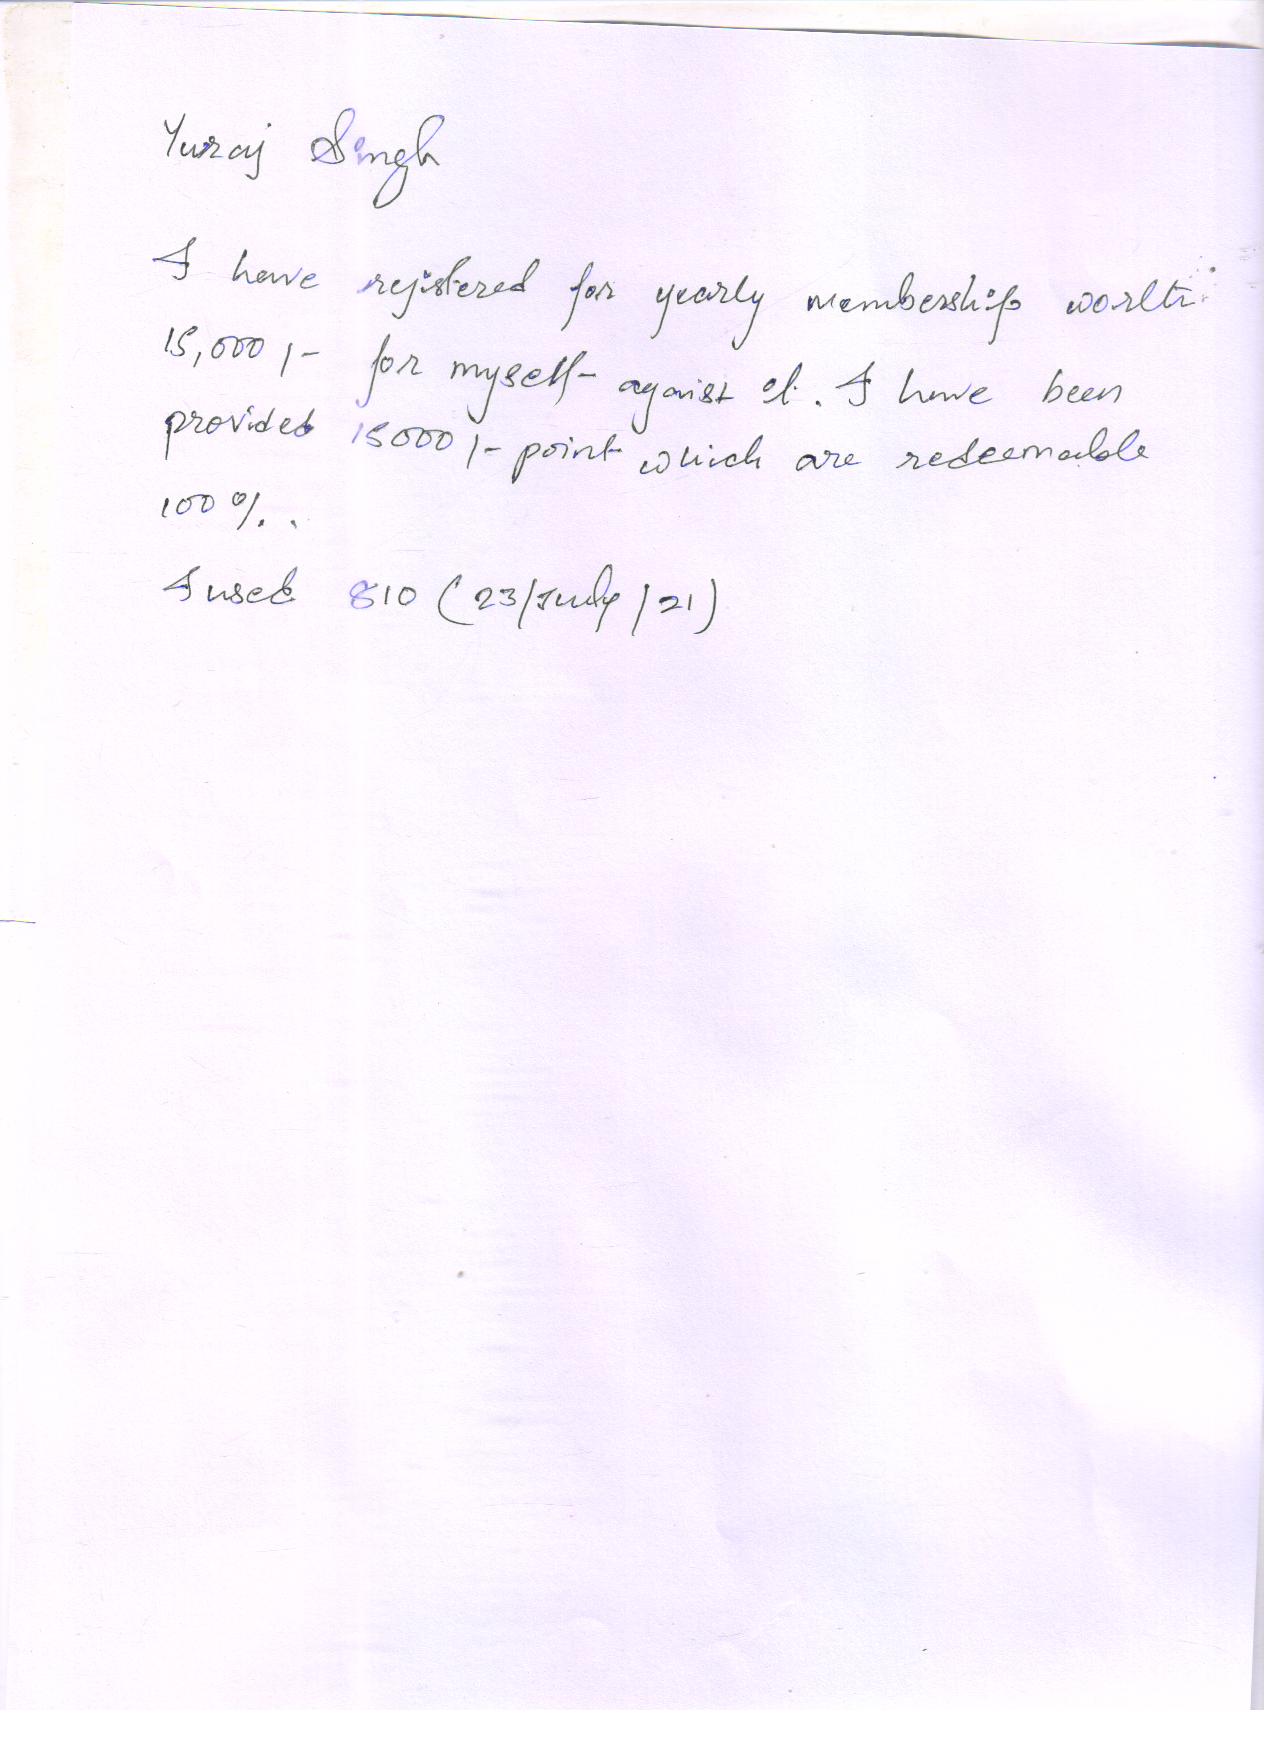 Yuraj Singh
I have rejistered for yearly membership worth
15,000/- for myself- against it. I have been
provided 15000/- point which are redeemable
100%.
I used 810 (23/July/21)